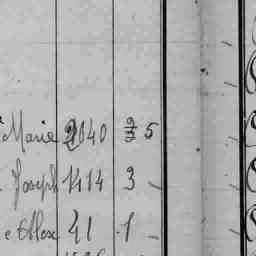 Marie 2040 5
Joseph 1414 3
e Alex 41 1